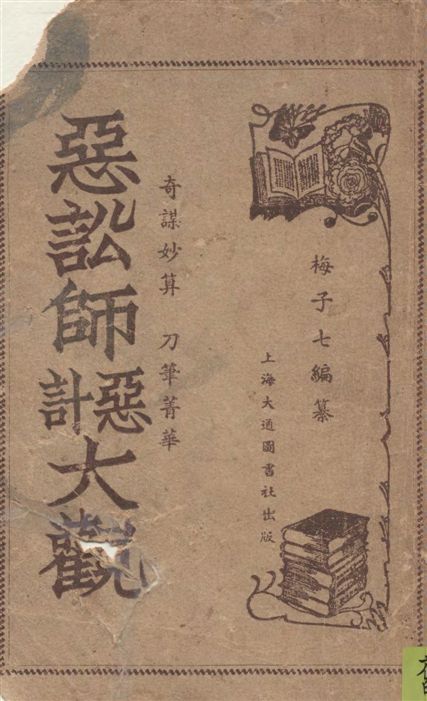 梅子七編纂
上海大通圖書社出版
奇謀妙算 刀筆菁華
惡訟師惡計大觀